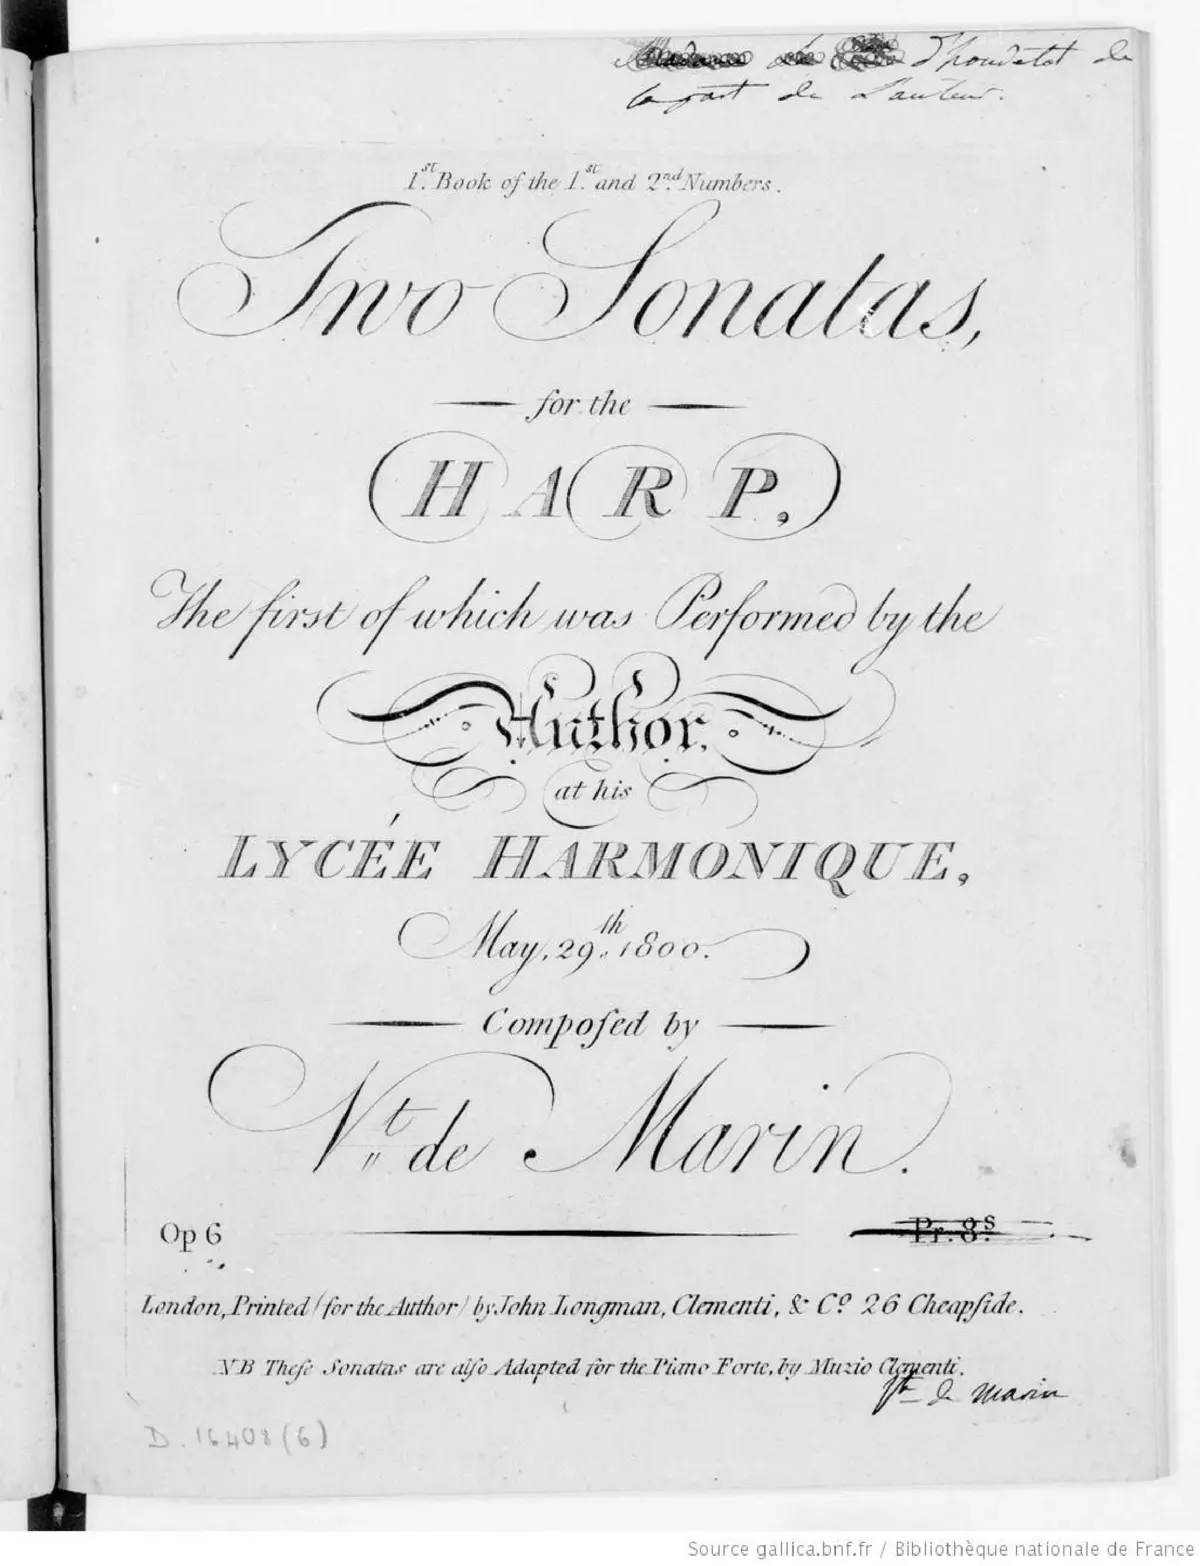 d'houdetot de
la part de L'auteur.
1.st Book of the 1.st and 2.nd Numbers.
Two Sonatas,
for the
HARP,
The first of which was Performed by the
Author,
at his
LYCÉE HARMONIQUE,
May, 29.th 1800.
Compoſed by
V.t de Marin.
Op 6
Pr. 8.s
London, Printed (for the Author) by John Longman, Clementi, & Co. 26 Cheapſide.
NB Theſe Sonatas are alſo Adapted for the Piano Forte, by Muzio Clementi.
Vte de Marin
D. 16408 (6)
Source gallica.bnf.fr / Bibliothèque nationale de France